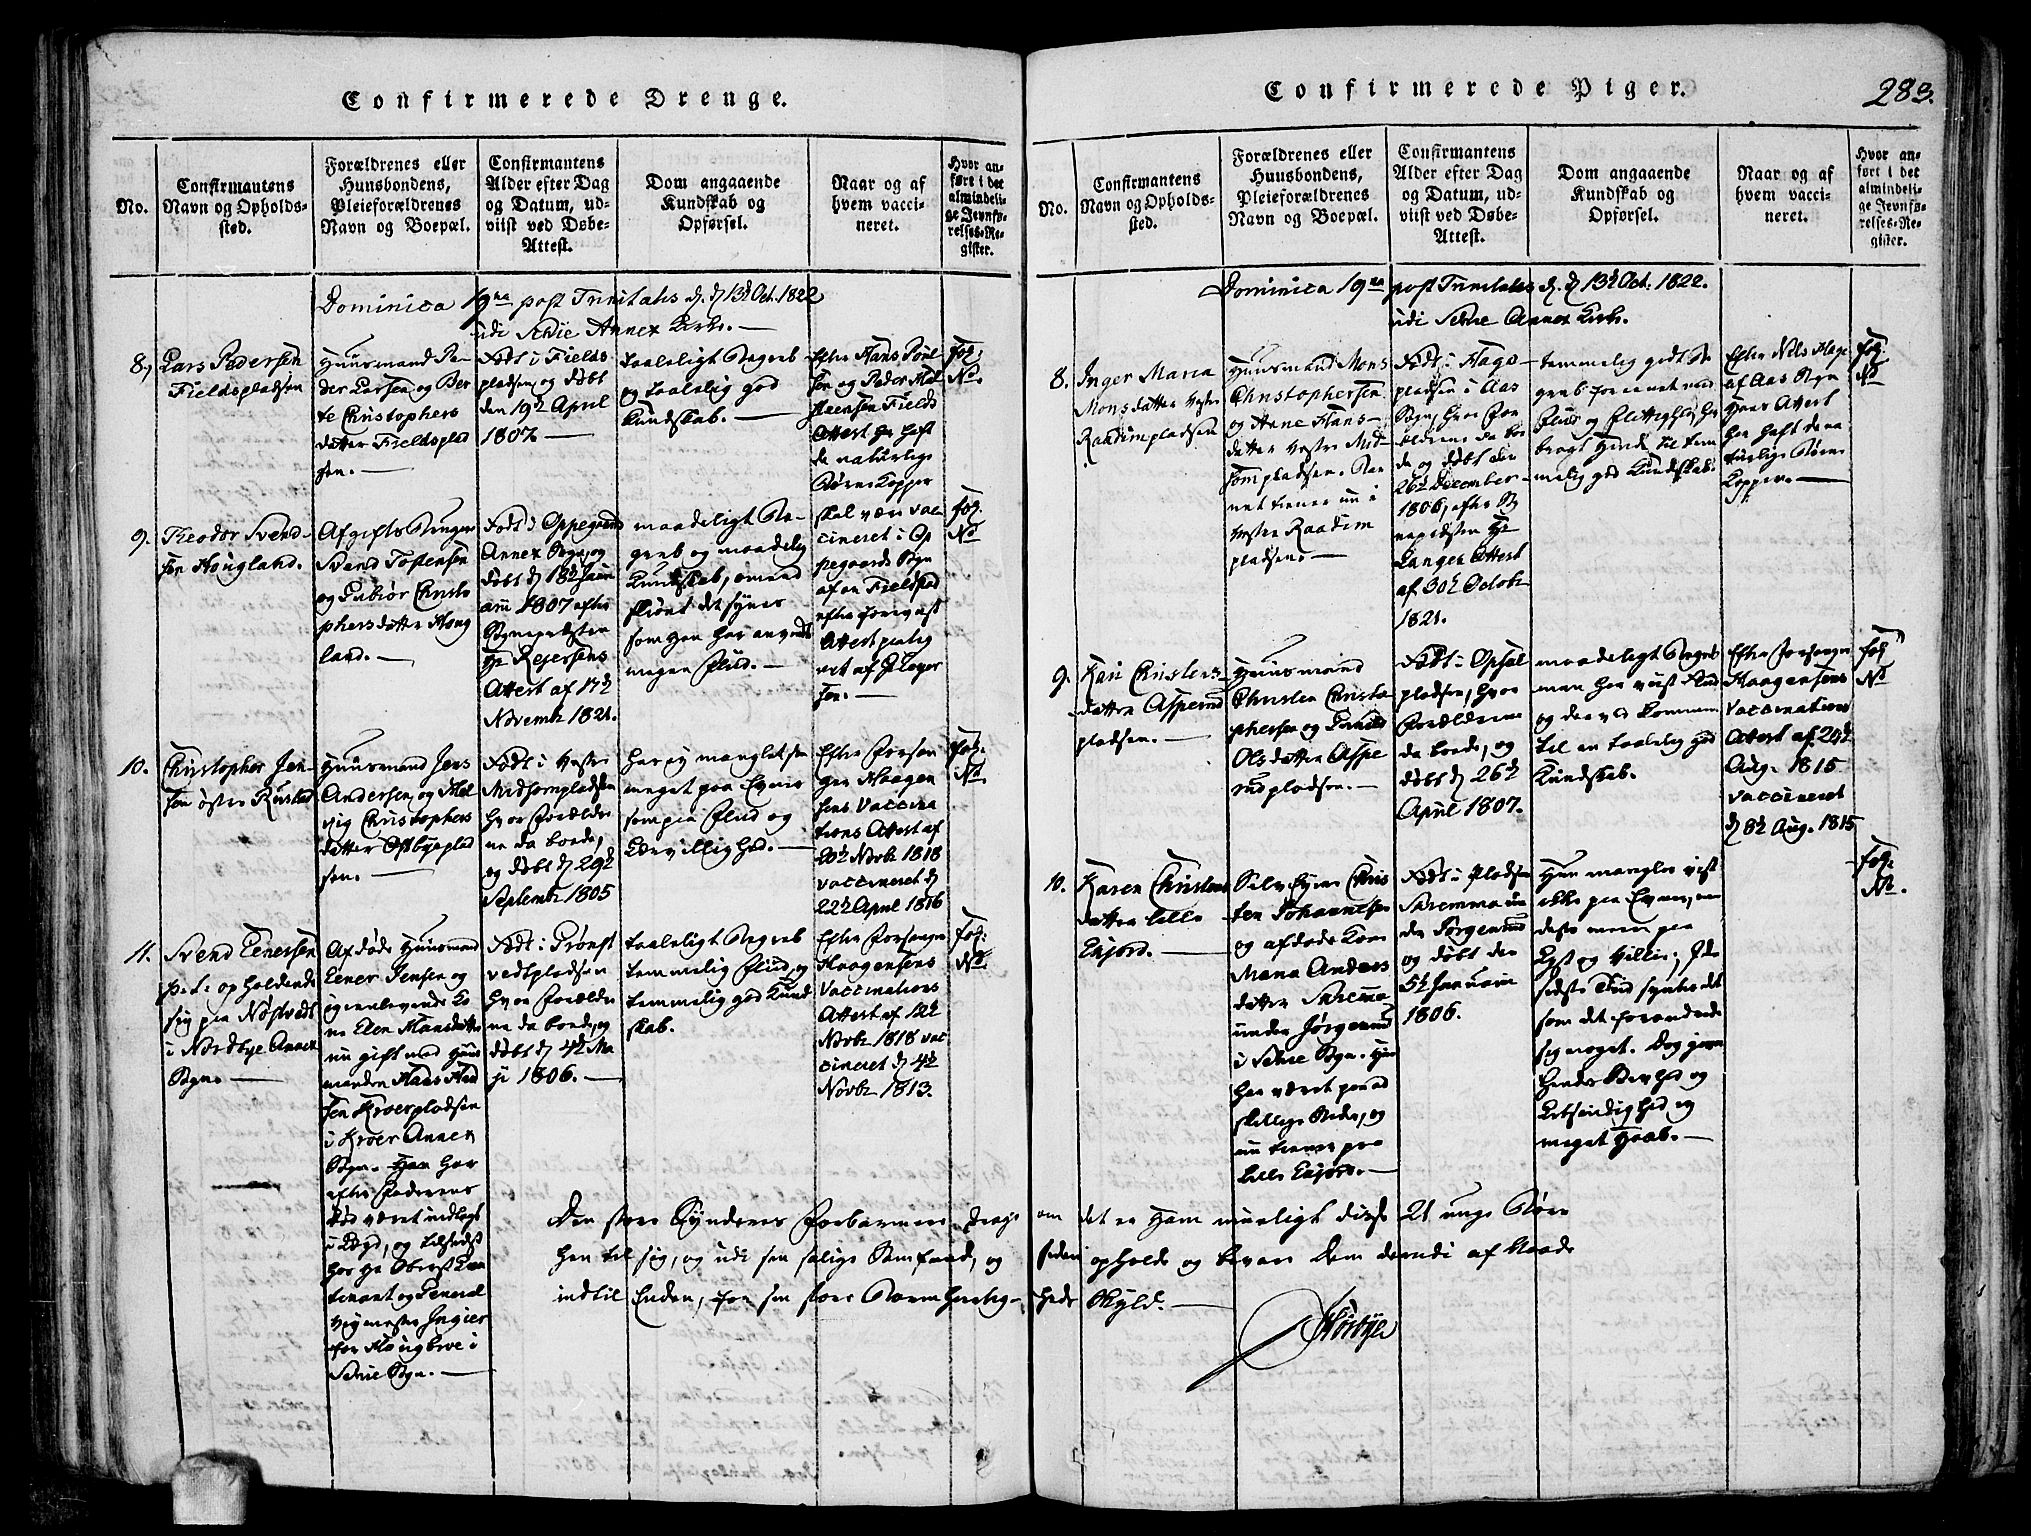 Confirmerede Drenge.
No.
Confirmantens
Navn og Opholds-
sted.
Forældrenes eller
Huusbondens,
Pleieforældrenes
Navn og Boepæl.
Confirmantens
Alder efter Dag
og Datum, ud-
viist ved Døbe-
Attest.
Dom angaaende
Kundskab og
Opførsel.
Naar og af
hvem vacci-
neret.
Hvor an-
ført i det
almindeli-
ge Jevnfø-
relses-Re-
gister.
Dominica 19na post Trinitatis d. 13d Oct. 1822
udi Schie Annex Kirke.
8,
Lars Pedersen
Fieldspladsen
Huusmand Pe-
der Larsen og Ber
te Christophers
datter Fieldsplad
sen.
Født i Fields
pladsen, og døbt
den 19d April
1807.
taaleligt Begreb
og taalelig god
Kundskab.
Efter Hans Poul
sen og Peder Hal
steensen Fields
Attest har haft
de naturlige
Børne Kopper
fol:
No.
9.
Theodor Svend-
sen Hougland.
Afgifts Bruger
Svend Tostensen
og Gubiør Christo
phersdatter Houg
land.
Født i Oppegaard
Annex Sogn, og
døbt d 18d Janu
arii 1807 efter
Sognepræsten
Hr Rejersens
Attest af 17d
Novembr 1821.
maadeligt Be-
greb og maadelig
Kundskab, omend
skiønt det synes
som han har anvendt
megen Fliid.
skal være vac
cineret i Op
pegaards Sogn
af en Fieldstad
efter foreviist
Attest
fol.
No
10.
Christopher Jen-
sen østre Rustad
Huusmand Jens
Andersen og Hel
vig Christophers
datter Østbyeplad
sen.
Født i Vestre
Midsompladsen
hvor Forældre
ne da boede,
og døbt d 29d
Septembr 1805
har ej manglet saa
meget paa Evner
som paa Fliid og
Lærvillighed.
Efter Jørgen
Haagen
sens Vaccina
tions Attest af
20d Novbr 1818
vaccineret d
22d April 1816
fol.
No.
11.
Svend Eenersen
p: t: opholdende
sig paa Nøstvedt
i Nordbye Annex
Sogn.
Afdøde Huusmand
Eener Jensen og
igienlevende Ko
ne Elen Hansdatter
nu gift med Huus
manden Hans
sen Kroerpladsen
i Kroer Annex
Sogn. Han har
efter Faderens
Død været indlagt
i Lægd, og tilsidst
hos Hr Oberst Lieu
tenant og General
Vejmester Ingier
for Hougbroe i
Schie Sogn.
Født i Brønst
vedtpladsen
hvor Forældre
ne da boede, og
døbt d 4d Ma
ji 1806.
taaleligt Begreb
temmelig Fliid, og
temmelig god Kund
skab.
Efter Jørgen
Haagensens
Vaccinations
Attest af 12d
Novbr 1818 vac
cineret d 4d
Novbr 1813.
fol:
No.
Confirmerede Piger.
283.
No.
Confirmantens
Navn og Opholds-
sted.
Forældrenes eller
Huusbondens,
Pleieforældrenes
Navn og Boepæl.
Confirmantens
Alder efter Dag
og Datum, ud-
viist ved Døbe-
Attest.
Dom angaaende
Kundskab og
Opførsel.
Naar og af
hvem vacci-
neret.
Hvor an-
ført i det
almindeli-
ge Jevnfø-
relses-Re-
gister.
Dominica 19na post Trinitatis d. 13d Oct. 1822.
udi Schie Annex Kirke.
8.
Inger Maria
Monsdatter Vestre
Raadimpladsen
Huusmand Mons
Christophersen
og Anne Hans-
datter Vestre Mid-
sompladsen.
tiener nu i
Vestre Raadim
pladsen.
Født i Hage
pladsen i Aas
Sogn, hvor For
ældrene da boe
de og døbt den
26d December
1806, efter Sog
nepræsten Hr
Langes Attest
af 30d Octobr
1821.
temmelig godt Be
greb forenet med
Fliid og Flittighed, har
bragt hende til tem
melig god Kundskab.
Efter Nils Hage
af Aas Sogn
Attest
har haft de na
turlige Børne
Kopper.
fol.
No
9.
Kari Christens-
datter Asperud
pladsen.
Huusmand
Christen Christo
phersen og
Olsdatter Aspe
rudpladsen.
Født i Opsal
pladsen, hvor
Forældrene
da boede, og
døbt d 26d
April 1807.
maadeligt Begreb
man har viist Fliid
og derved kommen
til en taalelig god
Kundskab.
Efter Jørgen
Haagensens
Vaccinations
Attest af 29d
Aug. 1815
vaccineret
d 8d Aug. 1815
fol
No
10.
Karen Christens
datter Lille
Enjord.
Selv Ejer Chris
ten Johannesen
og afdøde Karen
Maria Anders
datter Skremma
under Jørgerud
i Schie Sogn. Hun
har været paa ad
skillige Steder, og
nu tiener paa
Lille Enjord.
Født i Pladsen
Skremma un
der Jørgerud
og døbt den
5d Januarii
1806.
Hun mangler vist
ikke paa Evner, men
desto meere paa
Lyst og Villie; I den
sidste Tiid syntes det
som det forandrede
sig noget. Dog giver
hendes
og
meget Haab.
fol.
No.
Den store Synderes Forbarmer drage om det er Ham mueligt disse 21 unge Børn
hen til sig, og udi sin salige Samfund, og siden opholde og bevare Dem derudi af Naade
indtil Enden, for sin store Barmhertig-heds Skyld.
Hørbye